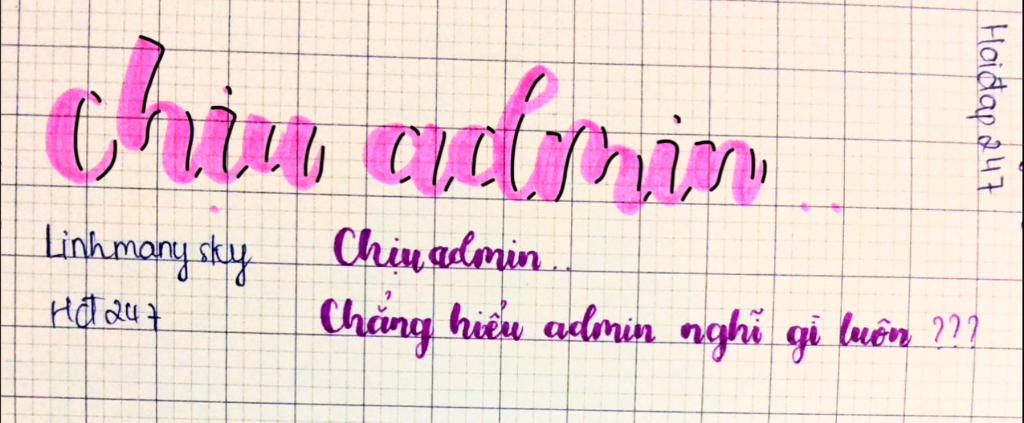 chịu admin..
Hoiđap 247
Linhmany sky
Chịu admin..
Hđ 247
Chẳng hiểu admin nghĩ gì luôn ???